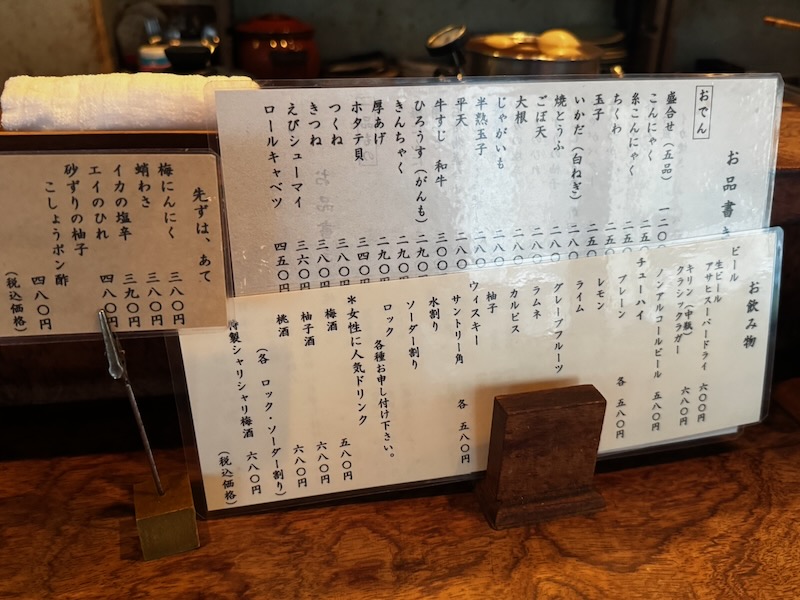 お品書き
おでん
盛合せ（五品） 一二〇
こんにゃく 二五
糸こんにゃく 二五
ちくわ 二五〇
玉子 二五〇
いかだ（白ねぎ） 二八〇
焼とうふ 二八〇
ごぼ天 二八〇
大根 二八〇
じゃがいも 二八〇
半熟玉子 二八〇
平天 二八〇
牛すじ 和牛 三〇〇
ひろうす（がんも） 二九〇
きんちゃく 二九〇
厚あげ 二九〇
ホタテ貝 三四〇
つくね 三八〇
きつね 三八〇
えびシューマイ 三六〇円
ロールキャベツ 四五〇円
お飲み物
ビール
生ビール
アサヒスーパードライ 六〇〇円
キリン（中瓶）
クラシックラガー 六八〇円
ノンアルコールビール 五八〇円
チューハイ
プレーン 各 五八〇円
レモン
ライム
グレープフルーツ
ラムネ
カルピス
柚子
ウィスキー
サントリー角 各 五八〇円
水割り
ソーダー割り
ロック 各種お申し付け下さい。
＊女性に人気ドリンク
梅酒 五八〇円
柚子酒 六八〇円
桃酒 六八〇円
（各 ロック・ソーダー割り）
特製シャリシャリ梅酒 六八〇円
（税込価格）
先ずは、あて
梅にんにく 三八〇円
蛸わさ 三八〇円
イカの塩辛 三九〇円
エイのひれ 四八〇円
砂ずりの柚子
こしょうポン酢 四八〇円
（税込価格）